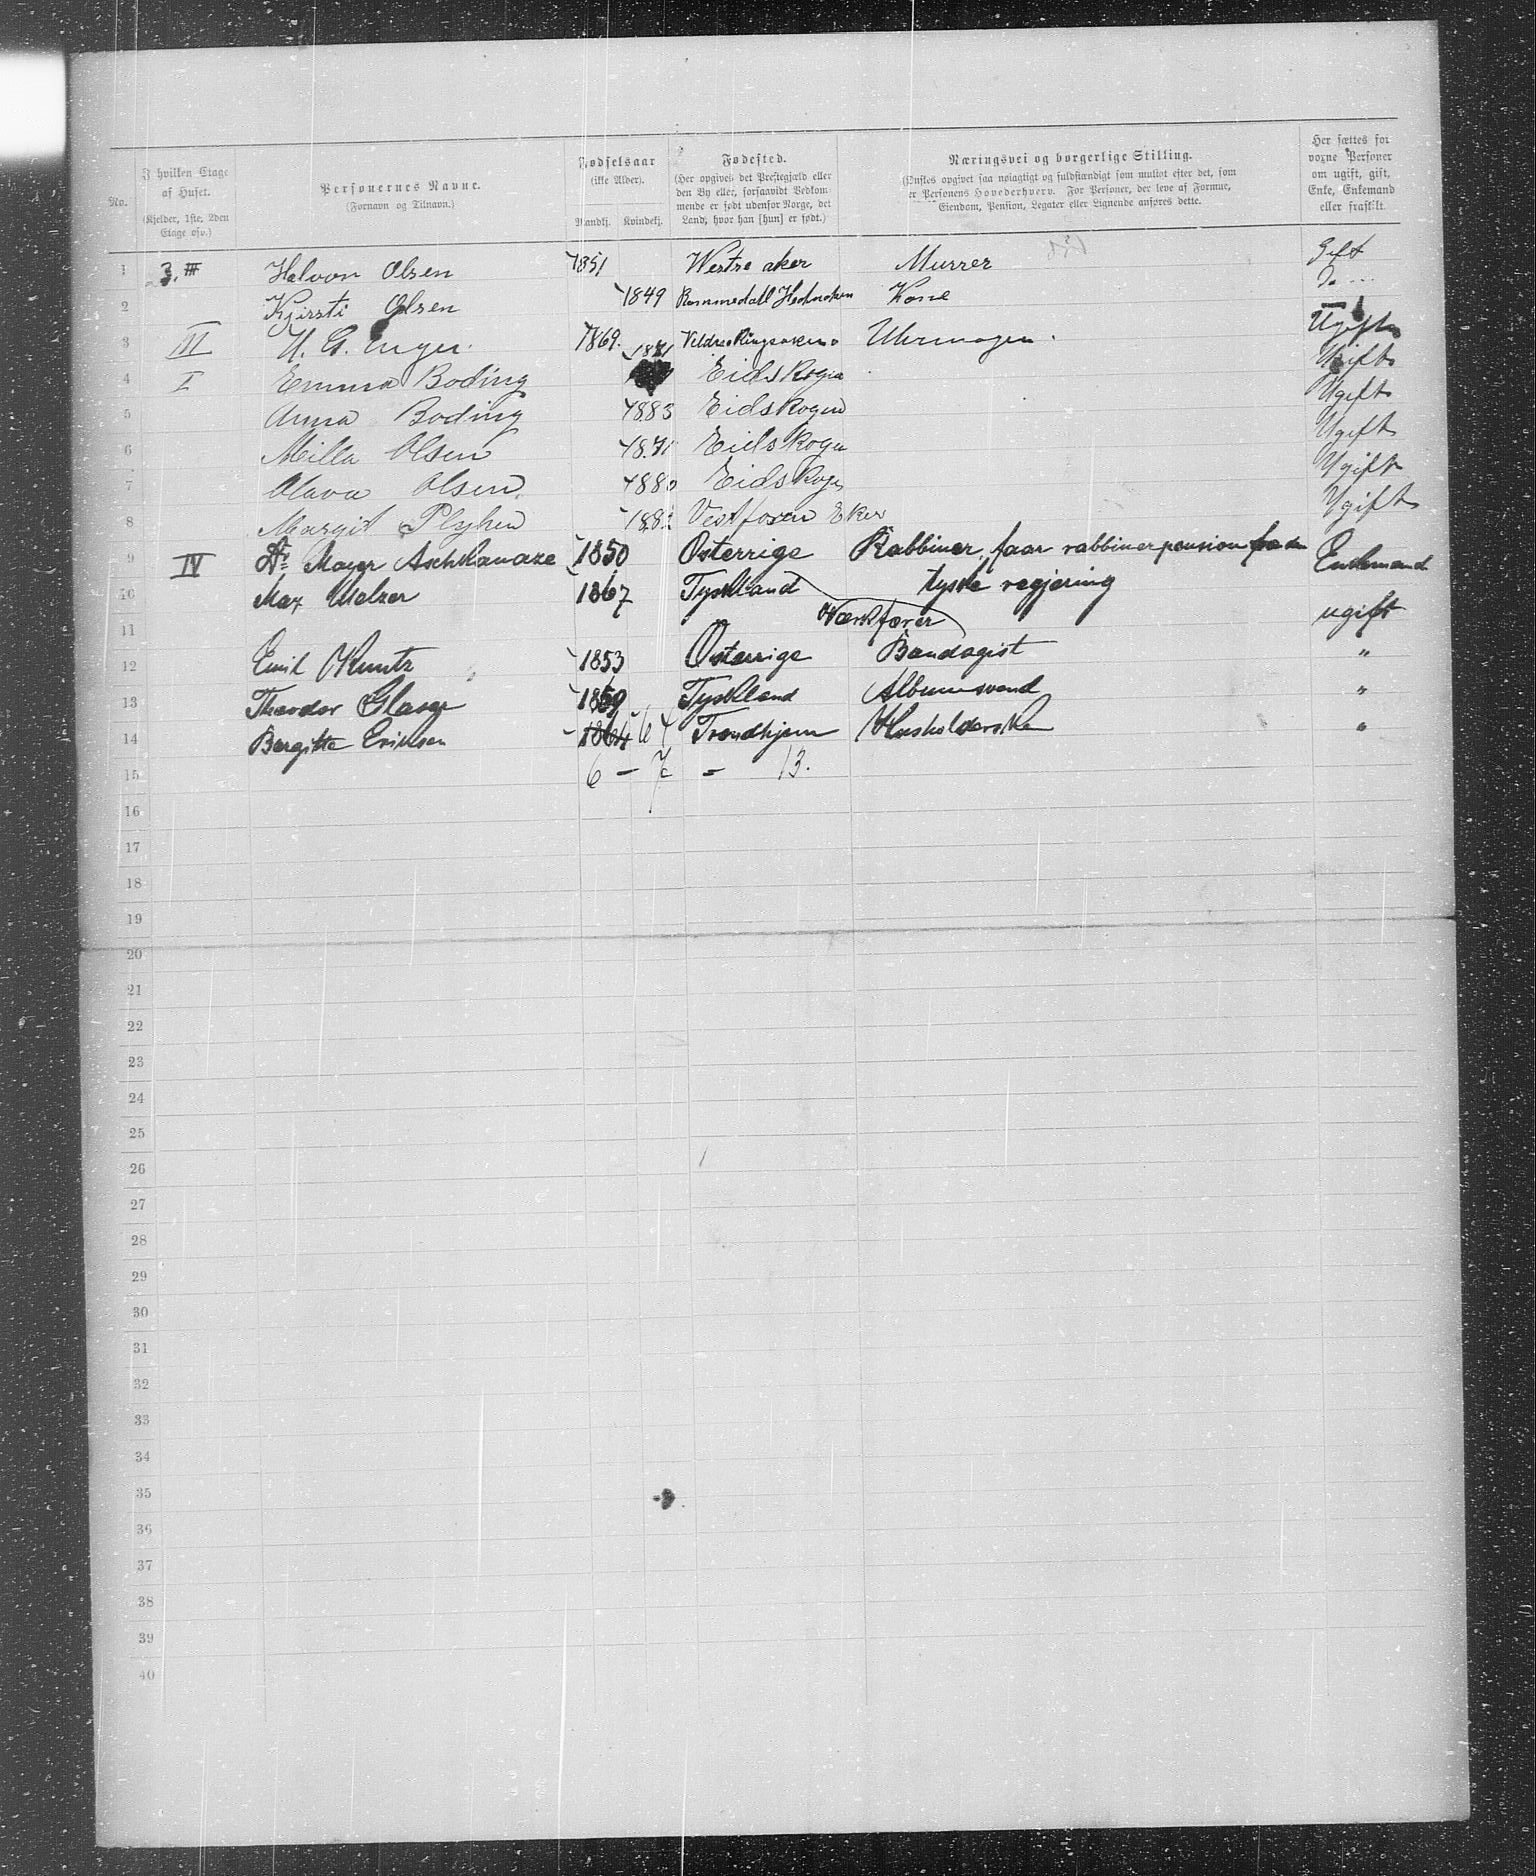 No.
I hvilken Etage af Huset. (Kjelder, 1ste, 2den Etage osv.)
Personernes Navne. (Fornavn og Tilnavn.)
Fødselsaar (ikke Alder). Mandkj. Kvindekj.
Fødested. (Her opgives det Prestegjæld eller den By eller, forsaavidt Vedkommende er født udenfor Norge, det Land, hvor han [hun] er født.)
Næringsvei og borgerlige Stilling. (Ønskes opgivet saa nøiagtigt og fuldstændigt som muligt efter det, som er Personens Hovederhverv. For Personer, der leve af Formue, Eiendom, Pension, Legater eller Lignende anføres dette.
Her sættes for voxne Personer om ugift, gift, Enke, Enkemand eller fraskilt.
1 3. III Halvor Olsen 1851 Westre aker Murrer Gift
2 Kjirsti Olsen 1849 Rommedall Hedmaken Kone Do
3 III H. G. Enger. 1869. Veldre Ringsaker Uhrmager. Ugift
4 I Emma Boding 1871 Eidskogen Ugift
5 Anna Boding 1883 Eidskogen Ugift
6 Milla Olsen 1871 Eidskogen Ugift
7 Olava Olsen 1880 Eidskog Ugift
8 Margit Plyhn 188 Vestfosen Eker Ugift
9 IV Dr. Mayer Aschkanaze 1850 Østerrige Rabbiner, faar rabbinerpension fra den Enkemand
10 Max Melzer 1867 Tyskland tyske regjering ugift
11 Værkfører
12 Emil Kuntz 1853 Østerrige Bandagist "
13 Theodor Glaser 1869 Tyskland Albumsvend "
14 Bergitte Eriksen 1864 64 Trondhjem Husholderske "
15 6 - 7 = 13.
16
17
18
19
20
21
22
23
24
25
26
27
28
29
30
31
32
33
34
35
36
37
38
39
40